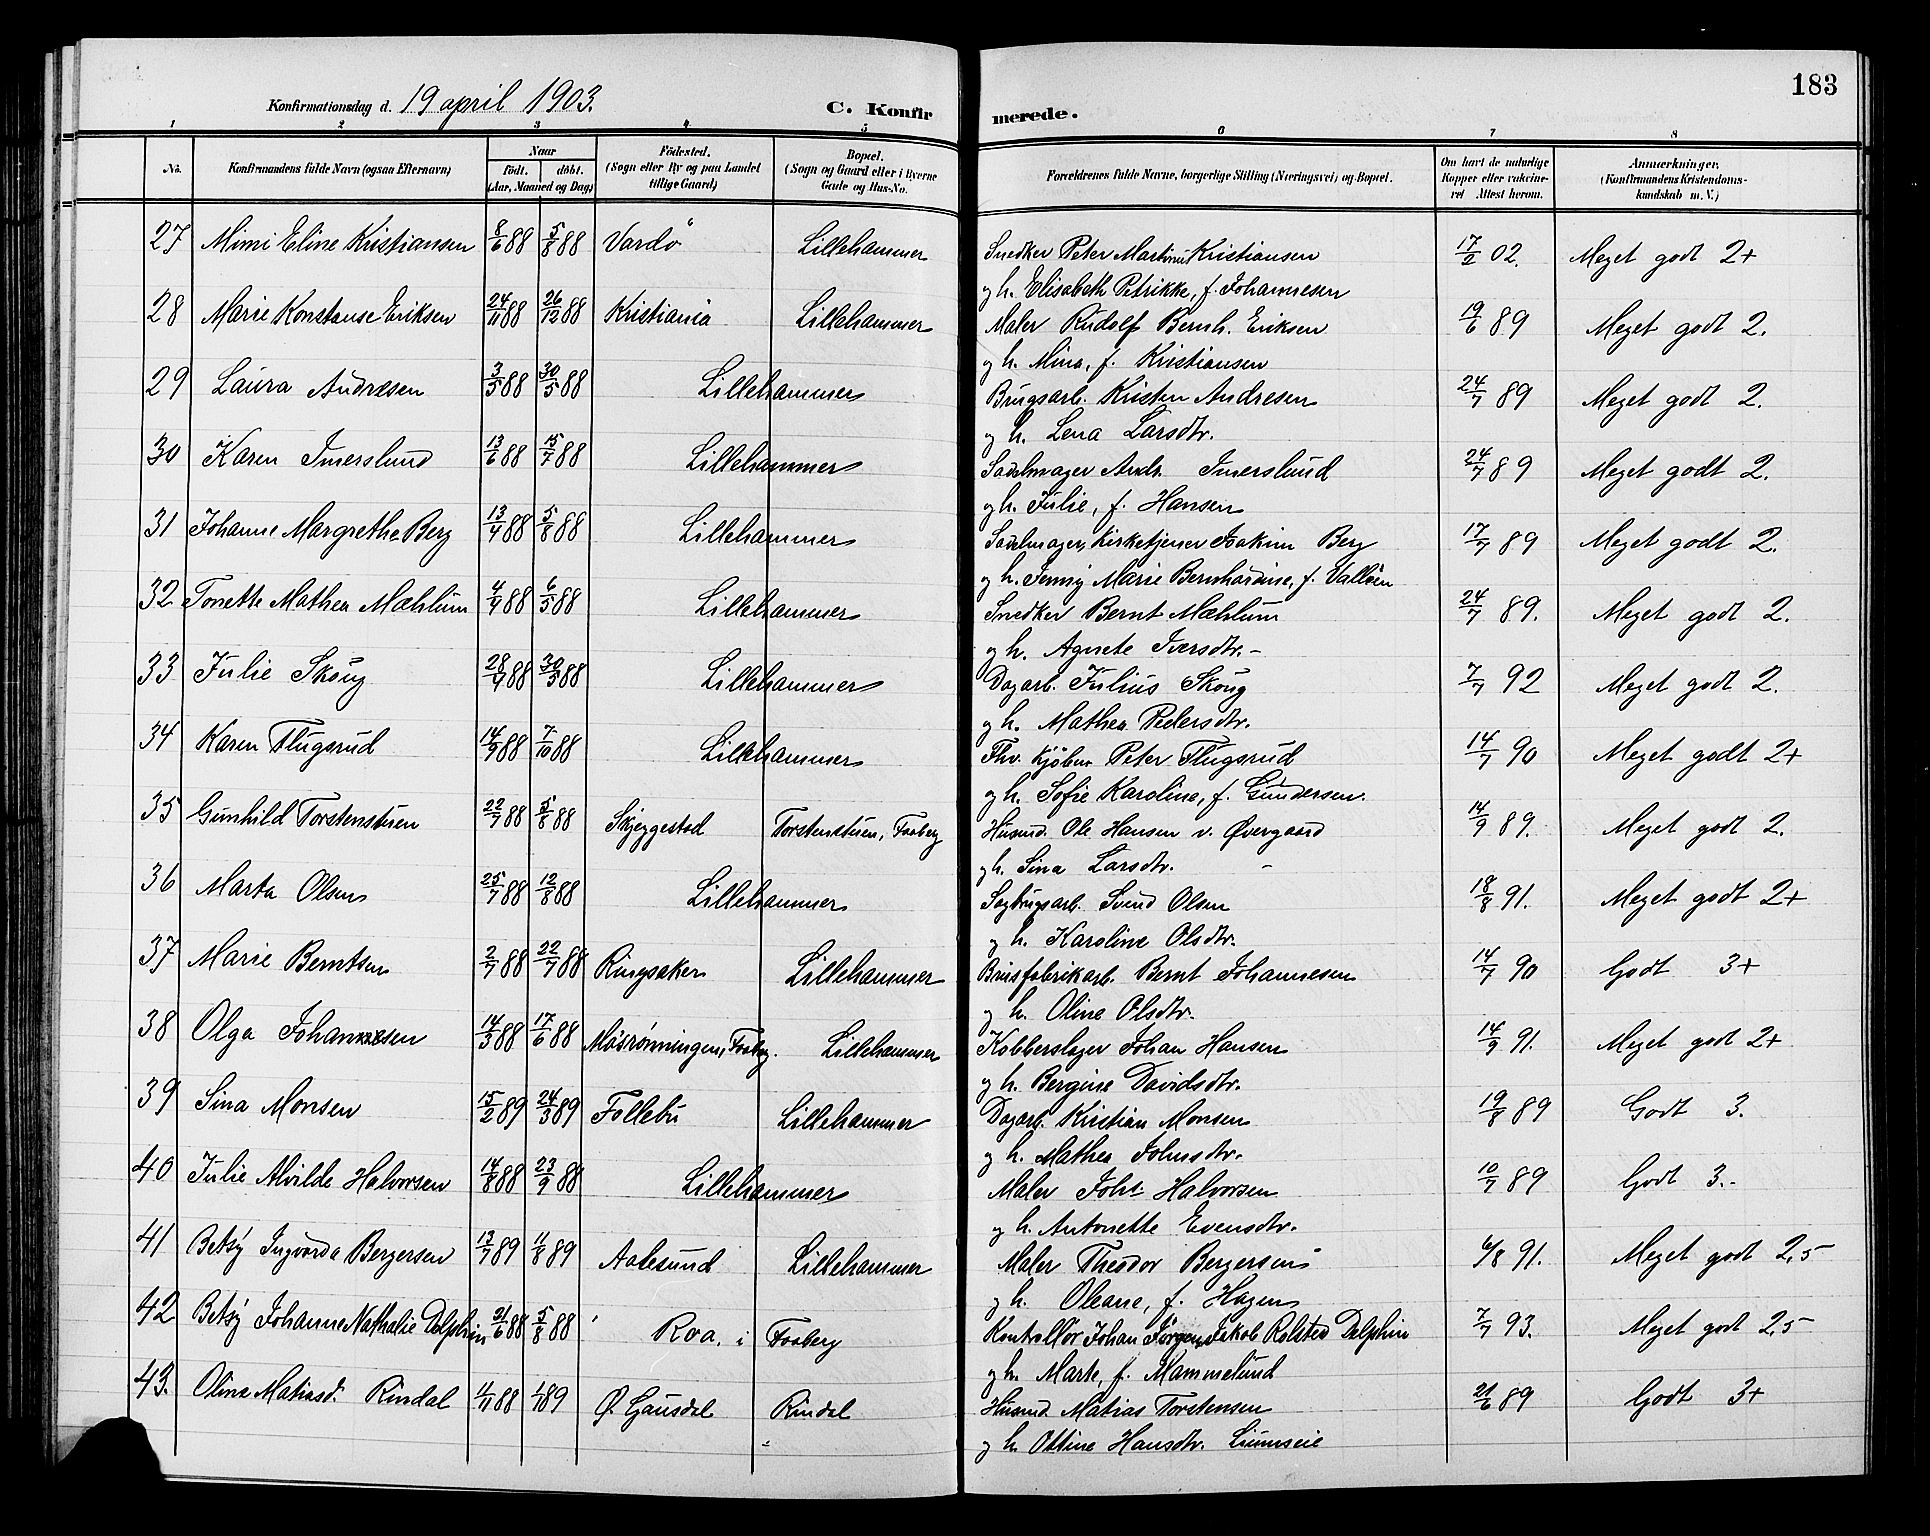 183
Konfirmationsdag d. 19 april 1903. C. Konfirmerede.
1 2 3 4 5 6 7 8
No. Konfirmandens fulde Navn (ogsaa Efternavn) Naar født. døbt. (Aar, Maaned og Dag) Fødested. (Sogn eller By og paa Landet tillige Gaard) Bopæl. (Sogn og Gaard eller i Byerne Gade og Hus-No. Forældrenes fulde Navne, borgerlige Stilling (Næringsvei) og Bopæl. Om havt de naturlige Kopper eller vakcineret Attest herom. Anmærkninger. (Konfirmandens Kristendomskundskab m. V.)
27 Mimi Eline Kristiansen 8/6 88 5/8 88 Vardö Lillehammer Snedker Peter Martinus Kristiansen 17/2 02. Meget godt 2+
og h. Elisabeth Petrikke, f. Johannesen
28 Marie Konstanse Eriksen 24/11 88 26/12 88 Kristiania Lillehammer Maler Rudolf Bernh. Eriksen 19/6 89 Meget godt 2.
og h. Mina, f. Kristiansen
29 Laura Andresen 3/5 88 30/5 88 Lillehammer Brugsarb. Kristen Andresen 24/7 89 Meget godt 2.
og h. Lena Larsdtr.
30 Karen Imerslund 13/6 88 15/7 88 Lillehammer Sadelmager Andr. Imerslund 24/7 89 Meget godt 2.
og h. Julie, f. Hansen
31 Johanne Margrethe Berg 13/4 88 5/8 88 Lillehammer Sadelmager, Kirketjener Joakim Berg 17/7 89 Meget godt 2.
og h. Jenny Marie Bernhardine, f. Walløen
32 Tonette Mathea Mæhlum 4/4 88 6/5 88 Lillehammer Snedker Bernt Mæhlum 24/7 89. Meget godt 2.
og h. Agnete Iversdtr. -
33 Julie Skoug 28/4 88 30/5 88 Lillehammer Dagarb. Julius Skoug 7/7 92 Meget godt 2.
og h. Mathea Pedersdtr.
34 Karen Flugsrud 14/9 88 7/10 88 Lillehammer Fhv. Kjøbm. Peter Flugsrud 14/7 90 Meget godt 2+
og h. Sofie Karoline, f. Gundersen.
35 Gunhild Torstenstuen 22/7 88 5/8 88 Skjeggestad Torstenstuen, Faaberg Husmd. Ole Hansen v. Øvergaard 14/9 89. Meget godt 2.
og h. Sina Larsdtr. -
36 Marta Olsen 25/7 88 12/8 88 Lillehammer Sagbrugsarb. Svend Olsen 18/8 91. Meget godt 2+
og h. Karoline Olsdtr.
37 Marie Berntsen 2/7 88 22/7 88 Ringsaker Lillehammer Brusfabrikarb. Bernt Johannesen 14/7 90 Godt 3+
og h. Oline Olsdtr.
38 Olga Johansen 14/3 88 17/6 88 Mosrønningen, Faaberg. Lillehammer Kobberslager Johan Hansen 14/9 91. Meget godt 2+
og h. Bergine Davidsdtr.
39 Sina Monsen 15/2 89 24/3 89 Follebu Lillehammer Dagarb. Kristian Monsen 19/8 89 Godt 3.
og h. Mathea Johnsdtr.
40 Julie Alvilde Halvorsen 14/8 88 23/9 88 Lillehammer Maler Joh. Halvorsen 10/7 89 Godt 3.-
og h. Antonette Evensdtr.
41 Betsy Ingvarda Bergersen 13/7 89 11/8 89 Aalesund Lillehammer Maler Theodor Bergersen 6/8 91. Meget godt 2,5
og h. Oleane, f. Hagen
42 Betsy Johanne Nathalie Delphin 21/6 88 5/8 88 Roa. i Faaberg Kontrollør Johan Jørgen Jakob Rolsted Delphin 7/7 93. Meget godt 2,5
og h. Marte, f. Mammelund
43. Olina Matiasd. Rindal 4/11 88 1/1 89 Ø. Gausdal Rindal Husmd. Matias Torstensen 21/6 89 Godt 3+
og h. Ottine Hansdtr. Liumseie